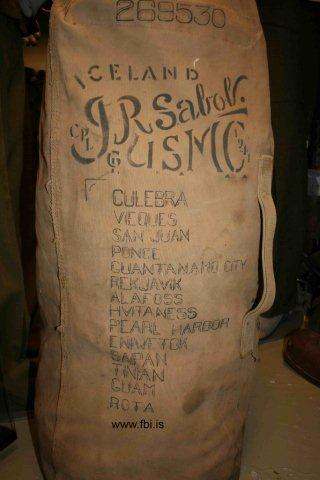 269530
ICELAND
CPL J.R. Sabol.
U.S.M.C.
CULEBRA
VEQUES
SAN JUAN
PONCE
GUANTANAMO CITY
REKJAVIK
ALAFOSS
HVITANESS
PEARL HARBOR
ENIWETOK
SAPAN
TINIAN
GUAM
ROTA
www.fbi.is